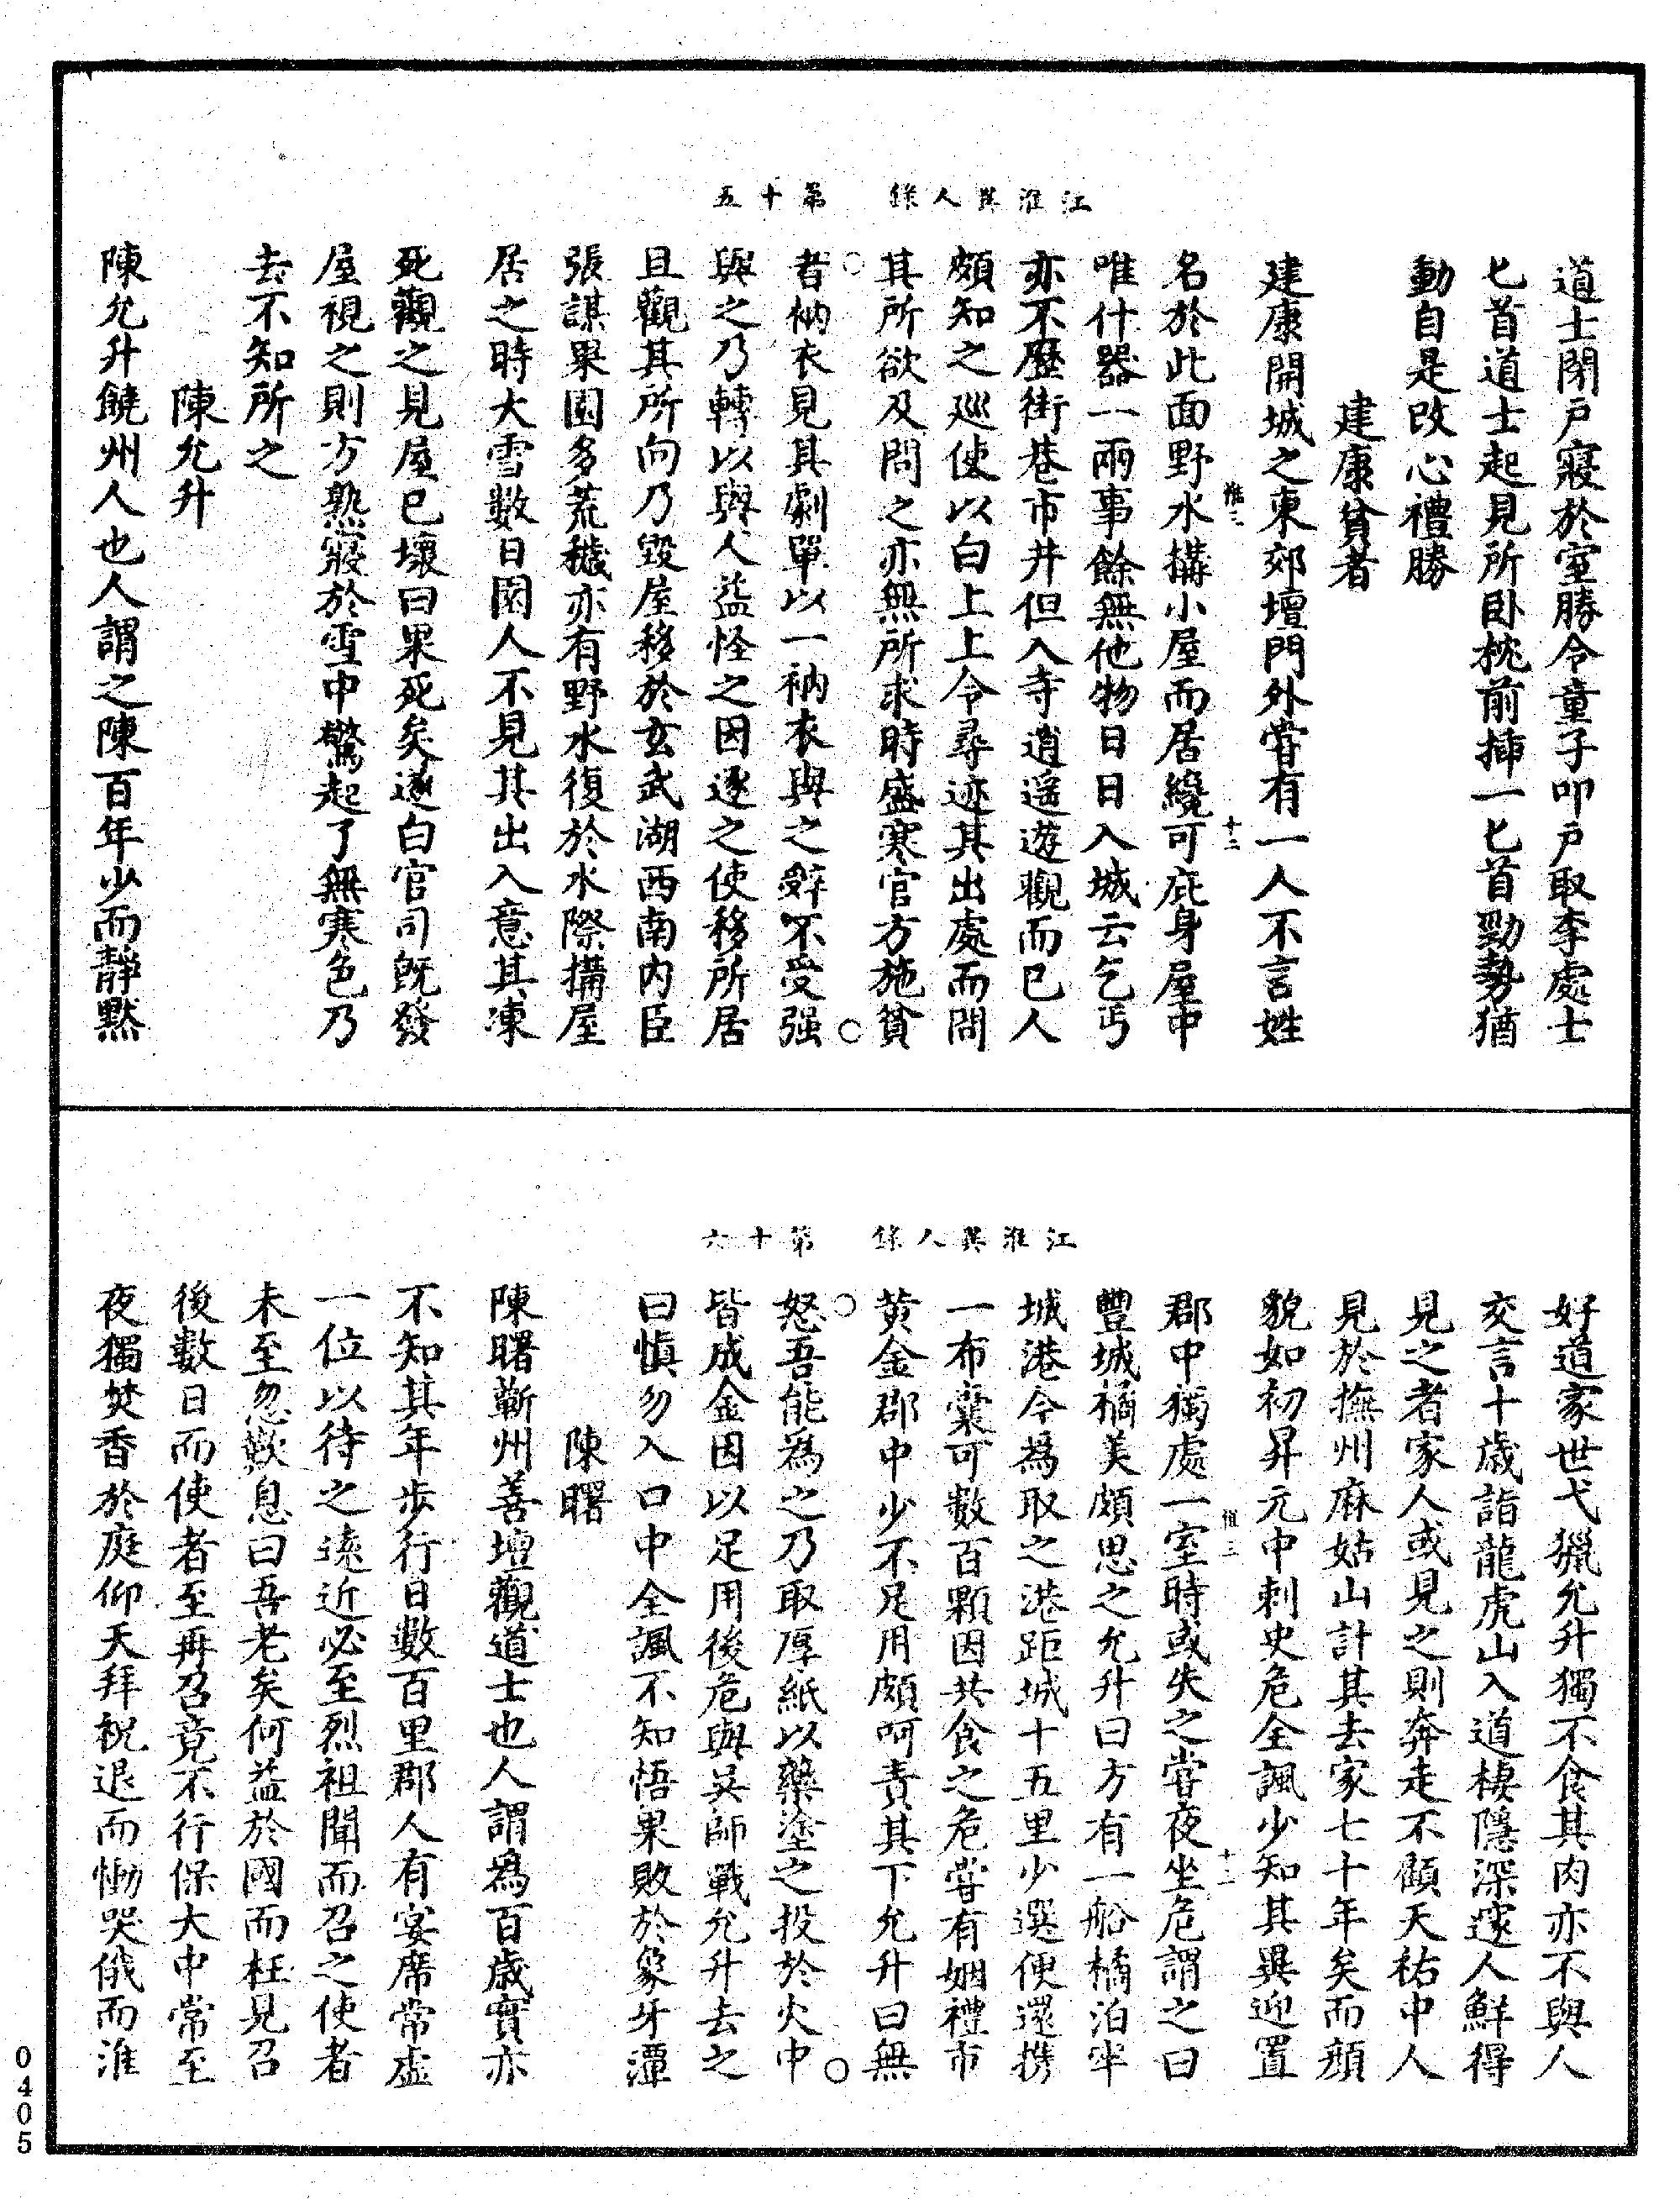 江淮異人錄　第十五
道士閉戶寢於室勝令童子叩戶取李處士
匕首道士起見所臥枕前揷一匕首勁勢猶
動自是改心禮勝
建康貧者
建康開城之東郊壇門外嘗有一人不言姓
惟三　十三
名於此面野水構小屋而居纔可庇身屋中
唯什器一兩事餘無他物日日入城云乞丐
亦不歷街巷市井但入寺逍遥遊觀而已人
頗知之巡使以白上上令尋迹其出處而問
其所欲及問之亦無所求時盛寒官方施貧
者衲衣見其劇單以一衲衣與之辤不受强
與之乃轉以與人益怪之因逐之使移所居
且觀其所向乃毀屋移於玄武湖西南内臣
張謀果園多荒穢亦有野水復於水際構屋
居之時大雪數日園人不見其出入意其凍
死觀之見屋已壞曰果死矣遂白官司旣發
屋視之則方熟寢於雪中驚起了無寒色乃
去不知所之
陳允升
陳允升饒州人也人謂之陳百年少而靜黙
江淮異人錄　第十六
好道家世弋獵允升獨不食其肉亦不與人
交言十歲詣龍虎山入道棲隱深邃人鮮得
見之者家人或見之則奔走不顧天祐中人
見於撫州麻姑山計其去家七十年矣而顔
貌如初昇元中刺史危全諷少知其異迎置
惟三　十二
郡中獨處一室時或失之嘗夜坐危謂之曰
豐城橘美頗思之允升曰方有一船橘泊牢
城港今爲取之港距城十五里少選便還携
一布囊可數百顆因共食之危嘗有姻禮市
黄金郡中少不足用頗呵責其下允升曰無
怒吾能爲之乃取厚紙以藥塗之投於火中
皆成金因以足用後危與吳師戰允升去之
曰愼勿入口中全諷不知悟果敗於象牙潭
陳曙
陳曙蘄州善壇觀道士也人謂爲百歲實亦
不知其年步行日數百里郡人有宴席常虛
一位以待之遠近必至烈祖聞而召之使者
未至忽歎息曰吾老矣何益於國而枉見召
後數日而使者至再召竟不行保大中常至
夜獨焚香於庭仰天拜祝退而慟哭俄而淮
0405